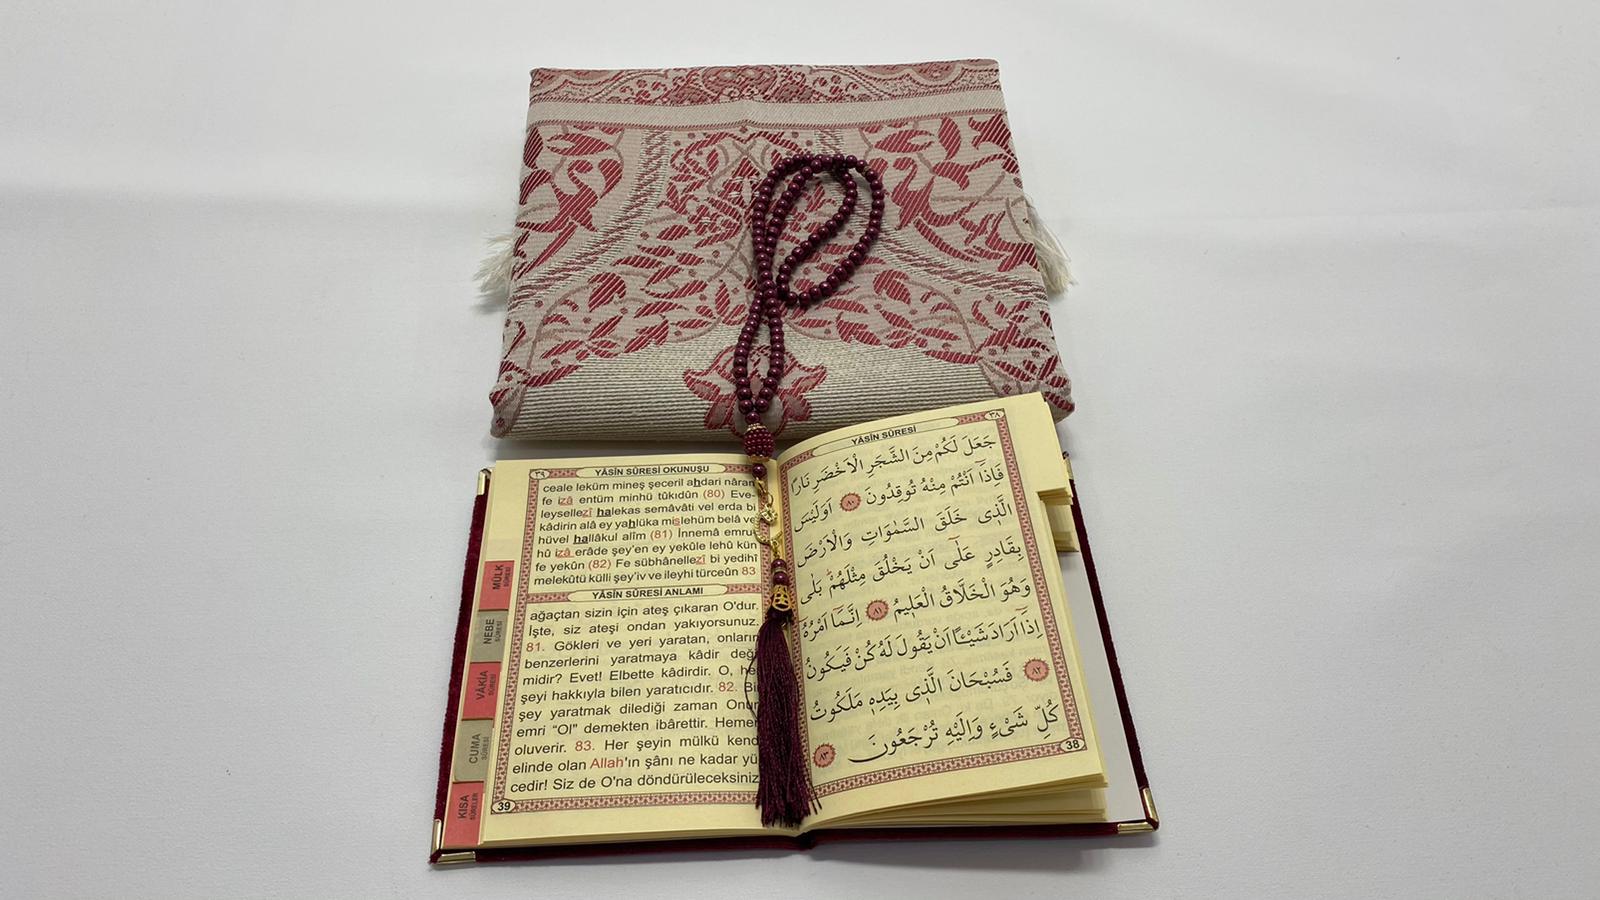 ٣٨
YÂSÎN SÛRESİ
جَعَلَ لَكُمْ مِنَ الشَّجَرِ الْاَخْضَرِ نَارًا
فَاِذَٓا اَنْتُمْ مِنْهُ تُوقِدُونَ ٨٠ اَوَلَيْسَ
الَّذ۪ى خَلَقَ السَّمٰوَاتِ وَالْاَرْضَ
بِقَادِرٍ عَلٰٓى اَنْ يَخْلُقَ مِثْلَهُمْ بَلٰى
وَهُوَ الْخَلَّاقُ الْعَل۪يمُ ٨١ اِنَّمَٓا اَمْرُهُٓ
اِذَٓا اَرَادَ شَيْـًٔا اَنْ يَقُولَ لَهُ كُنْ فَيَكُونُ
٨٢ فَسُبْحَانَ الَّذ۪ى بِيَدِه۪ مَلَكُوتُ
كُلِّ شَىْءٍ وَاِلَيْهِ تُرْجَعُونَ ٨٣
38
٣٩
YÂSÎN SÛRESİ OKUNUŞU
ceale leküm mineş şeceril ahdari nâran
fe izâ entüm minhü tûkıdûn (80) Eve-
leysellezî halekas semâvâti vel erda bi
kâdirin alâ ey yahlüka mislehüm belâ ve
hüvel hallâkul alîm (81) İnnemâ emru-
hû izâ erâde şey'en ey yekûle lehû kün
fe yekûn (82) Fe sübhânellezî bi yedihî
melekûtü külli şey'iv ve ileyhi türceûn 83
YÂSÎN SÛRESİ ANLAMI
ağaçtan sizin için ateş çıkaran O'dur.
İşte, siz ateşi ondan yakıyorsunuz.
81. Gökleri ve yeri yaratan, onların
benzerlerini yaratmaya kâdir deği
midir? Evet! Elbette kâdirdir. O, he
şeyi hakkıyla bilen yaratıcıdır. 82. Bi
şey yaratmak dilediği zaman Onun
emri "Ol" demekten ibârettir. Hemen
oluverir. 83. Her şeyin mülkü kend
elinde olan Allah'ın şânı ne kadar yü
cedir! Siz de O'na döndürüleceksiniz
39
MÜLK
SÛRESİ
NEBE
SÛRESİ
VÂKIA
SÛRESİ
CUMA
SÛRESİ
KISA
SÛRELER